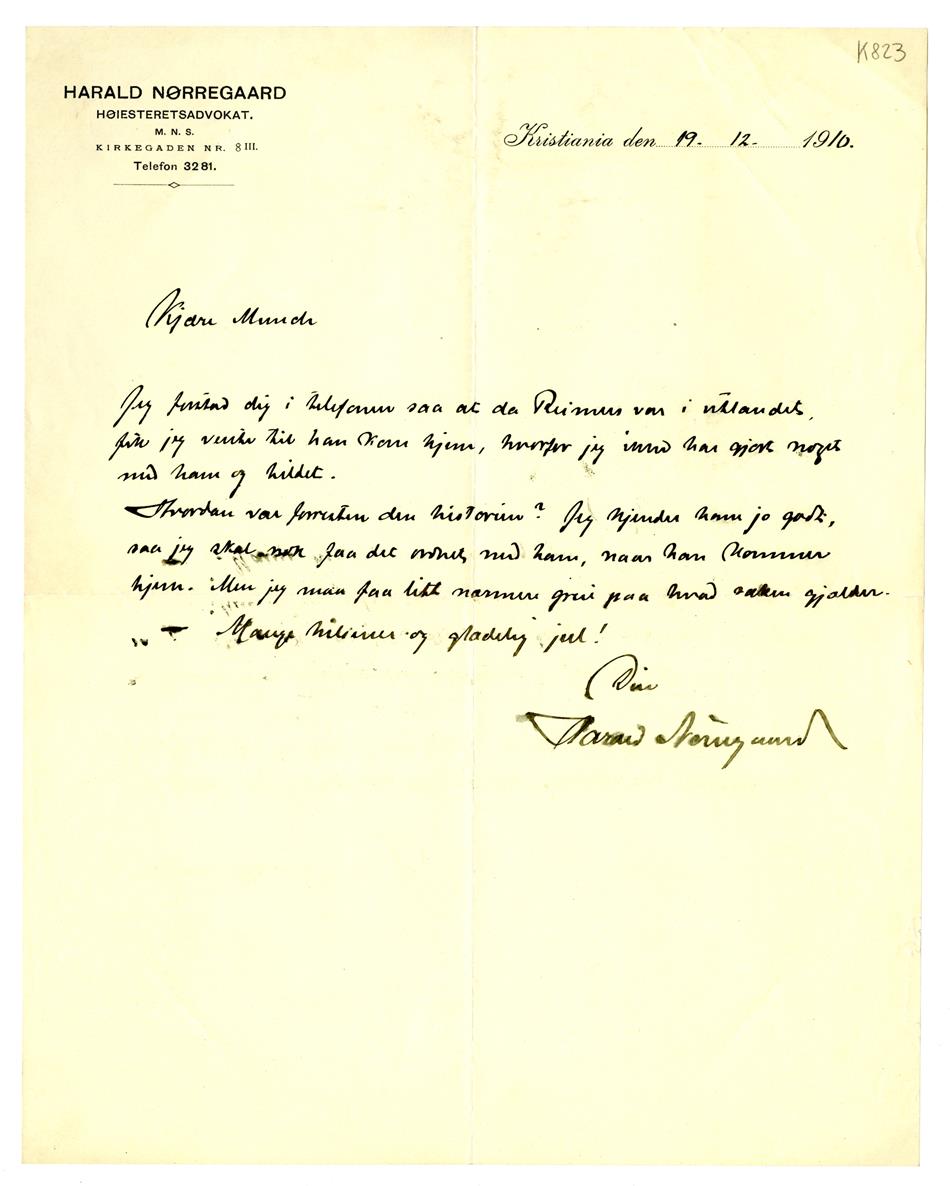 K823
HARALD NØRREGAARD
HØIESTERETSADVOKAT.
M. N. S.
KIRKEGADEN NR. 8 III.
Telefon 3281.
Kristiania den 19. 12. 1910.
Kjære Munch
Jeg forstod dig i telefonen saa at da Reimers var i utlandet,
fik jeg vente til han kom hjem, hvorfor jeg intet har gjort noget
med ham og billedet.
Hvordan var forresten den historien? Jeg kjender ham jo godt,
saa jeg skal nok faa det ordnet med ham, naar han kommer
hjem. Men jeg maa faa litt nærmere greie paa hvad saken gjælder.
Mange hilsener og glædelig jul!
Din
Harald Nørregaard